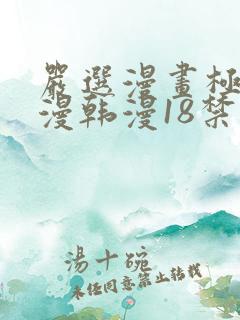 嚴選漫畫極
漫韩漫18禁
湯十碗
未经同意禁止转载